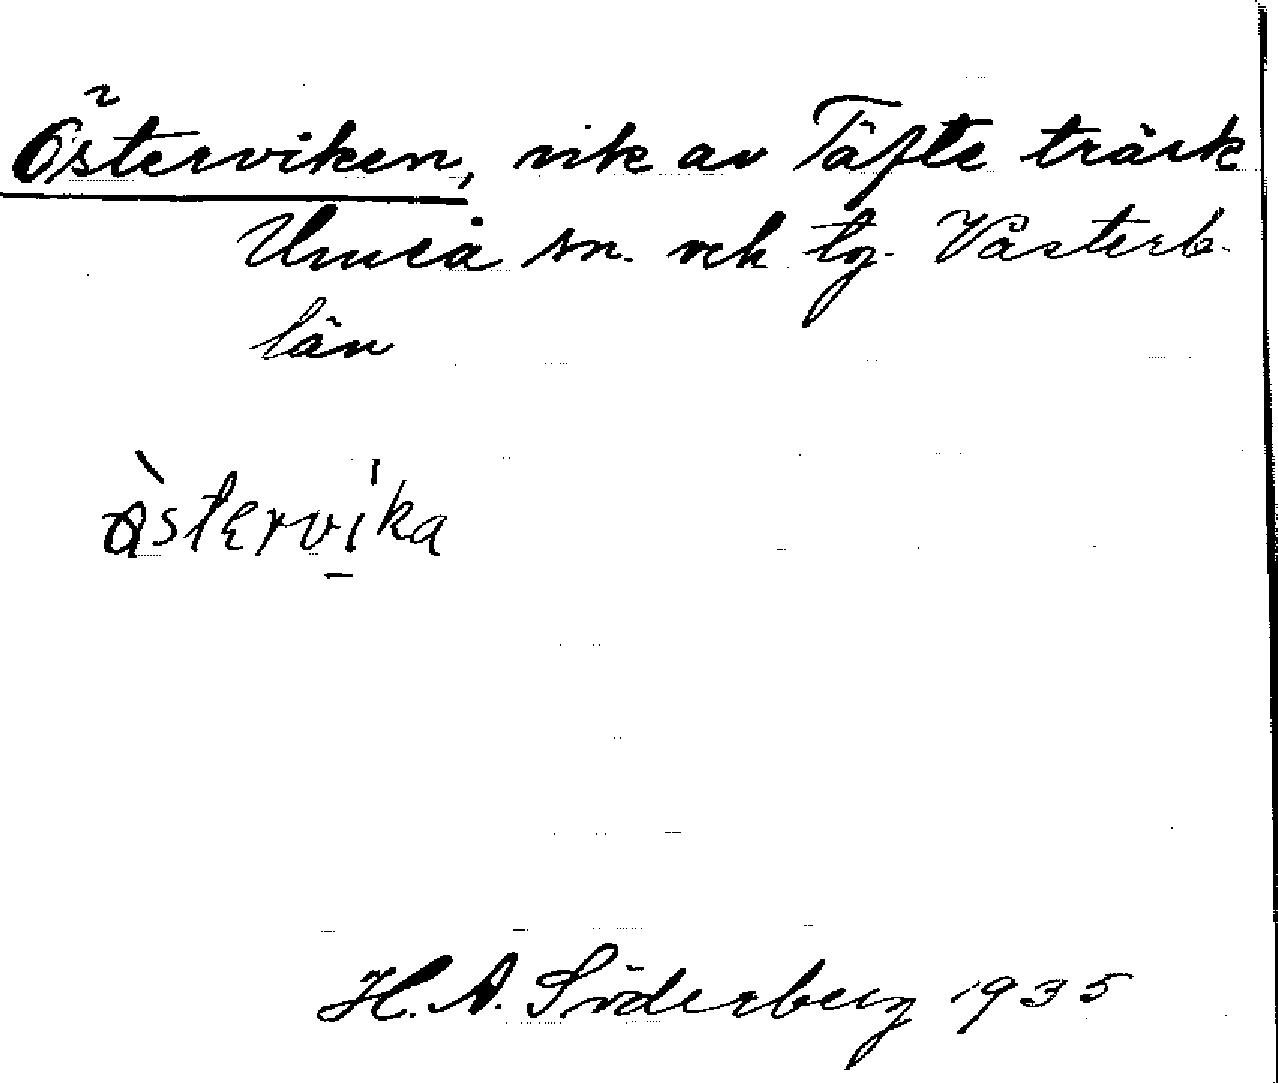 Österviken, vik av Täfte träsk
Umeå sn. och tg. Västerb.
län
östervika
H. A. Söderberg 1935